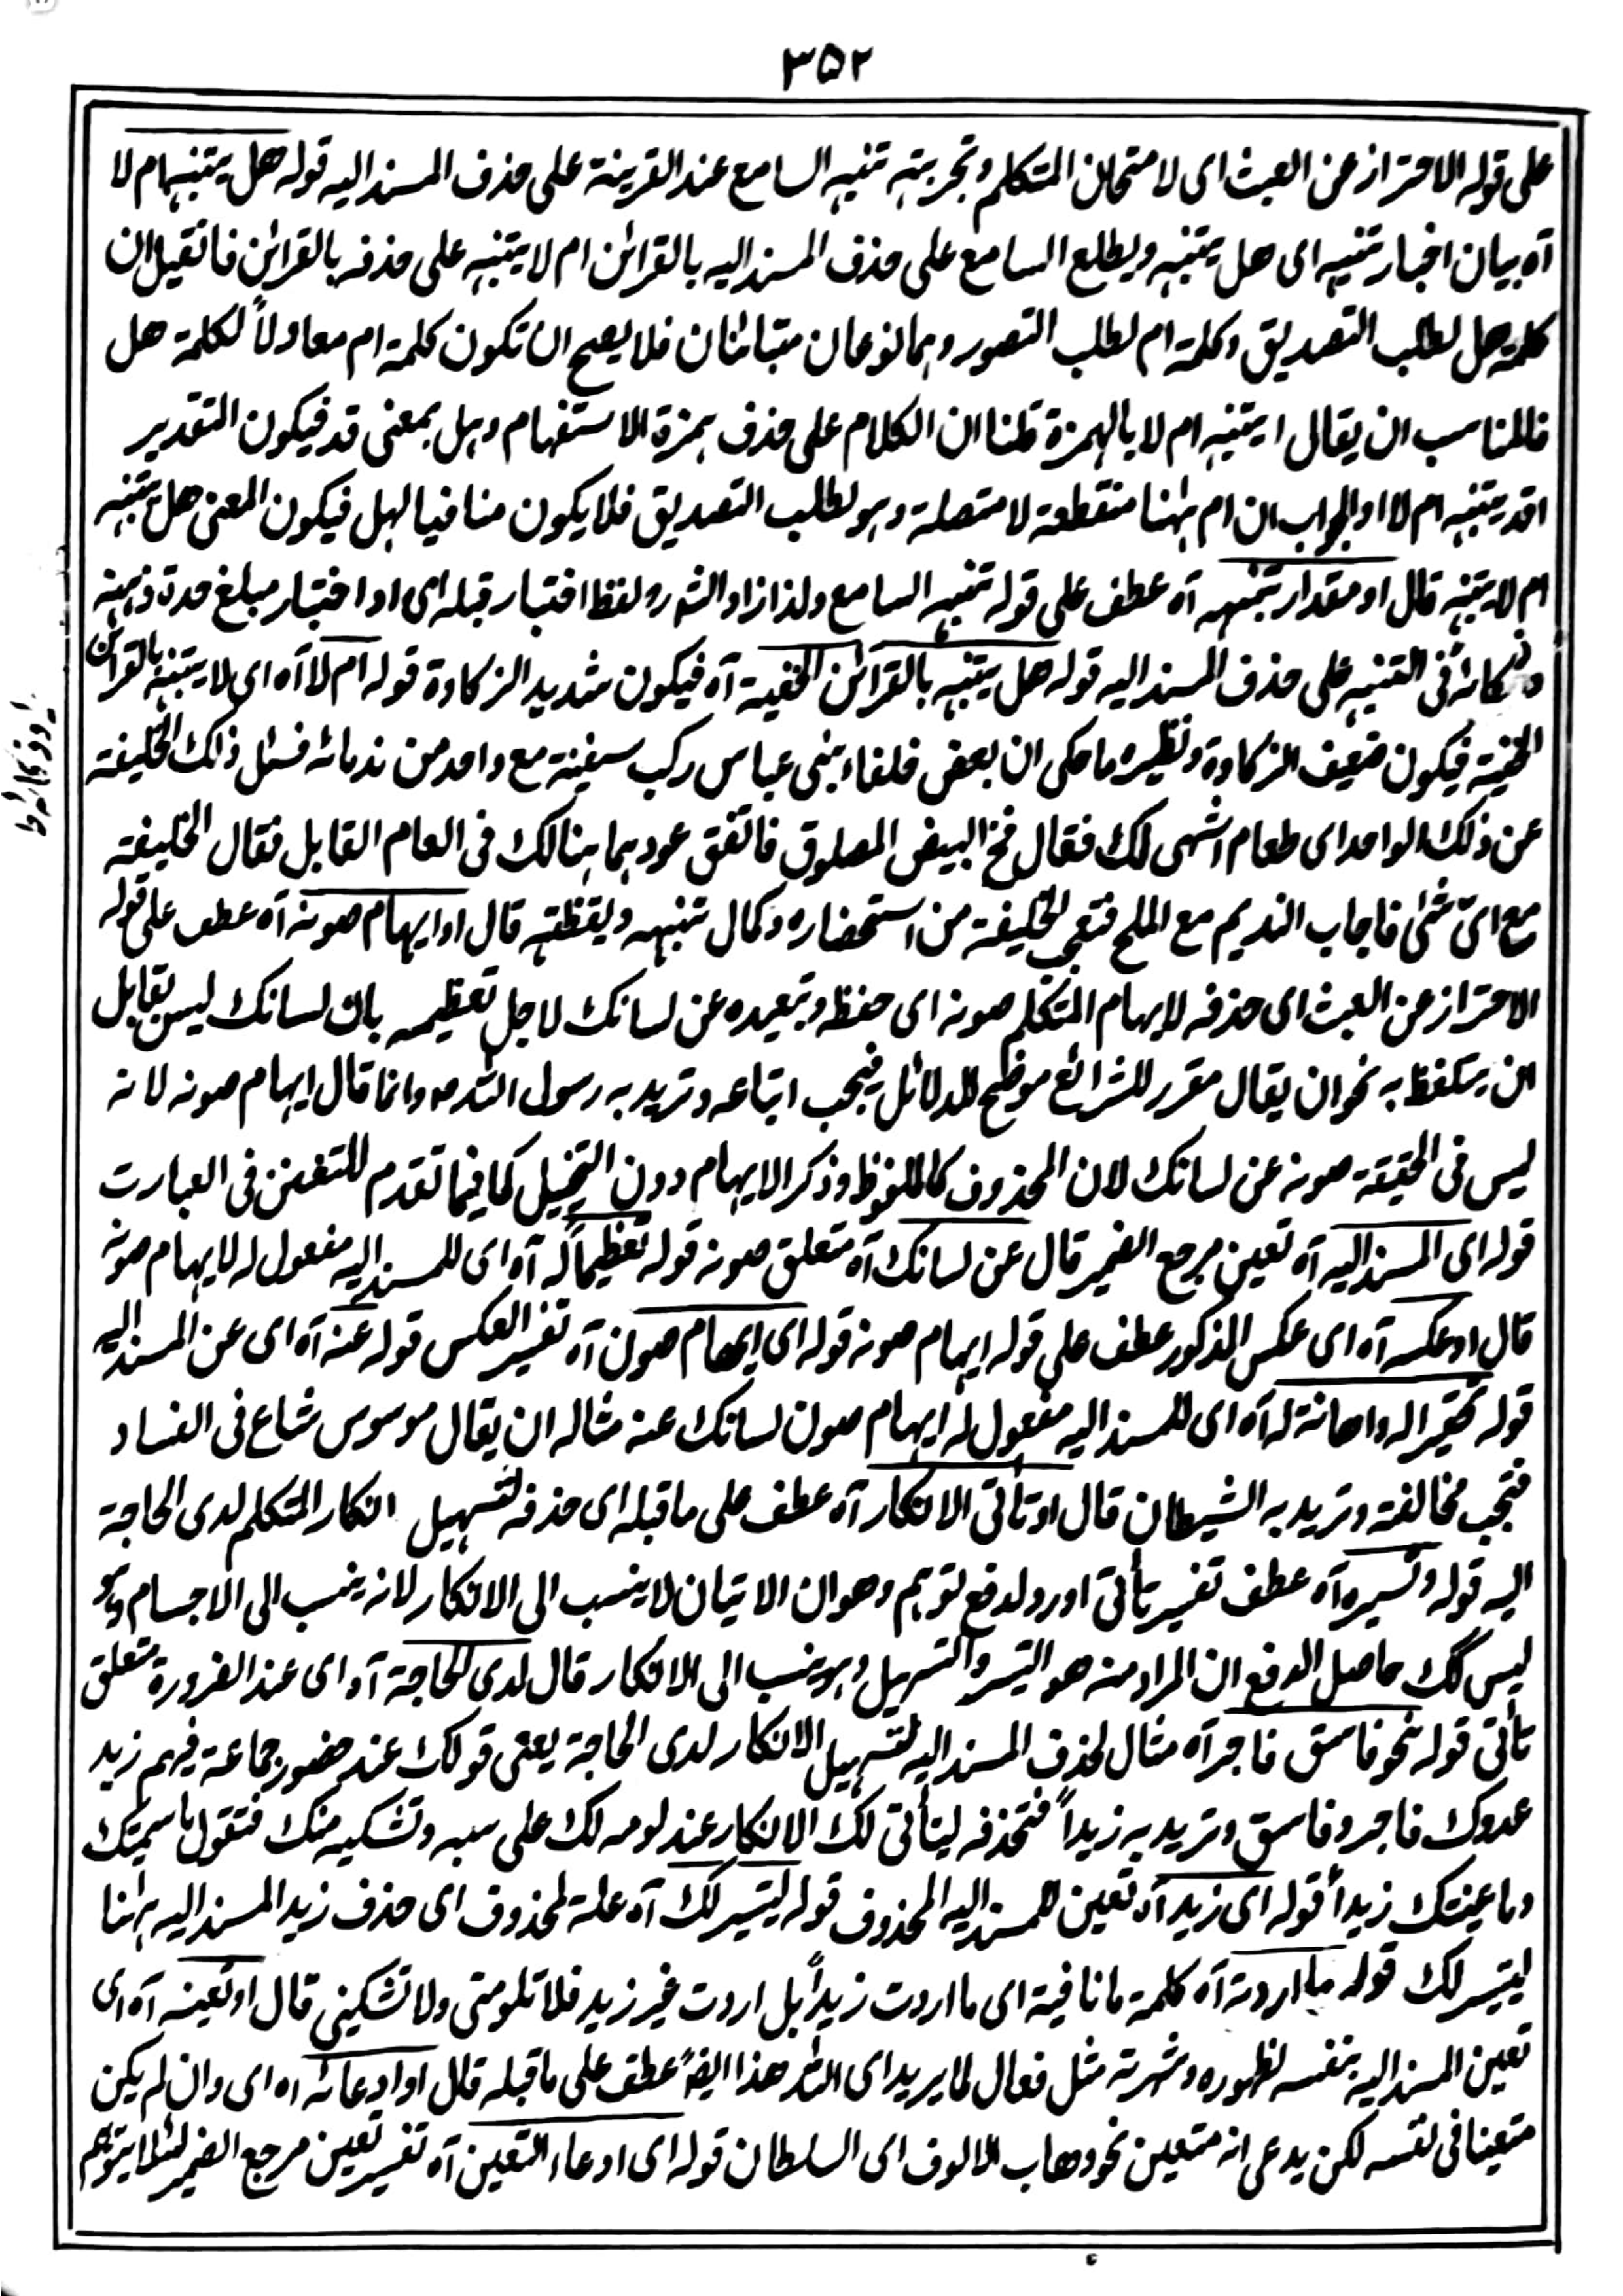 ۳۵۲
على قوله الاحتراز عن العبث اى لامتحان المتكلم وتجربته تنبه السامع عند القرينة على حذف المسند اليه قوله هل يتنبه ام لا
آه بيان اختبار تنبيه اى هل يتنبه ويطلع السامع على حذف المسند اليه بالقرائن ام لا يتنبه على حذفه بالقرائن فان قيل ان
كلمة هل لطلب التصديق وكلمة ام لطلب التصور وهما نوعان متبائنان فلا يصح ان تكون كلمة ام معادلاً لكلمة هل
فالمناسب ان يقال ايتنبه ام لا بالهمزة قلنا ان الكلام على حذف همزة الاستفهام وهل بمعنى قد فيكون التقدير
اقد يتنبه ام لا او الجواب ان ام ههنا منقطعة لا متصلة وهو لطلب التصديق فلا يكون منافيا لهل فيكون المعنى هل يتنبه
ام لا يتنبه قال او مقدار تنبهه آه عطف على قوله تنبه السامع ولذا زاد الشہ رہ لفظ اختبار قبله اى او اختبار مبلغ حدة ذهنه
وذكائه فى التنبه على حذف المسند اليه قوله هل يتنبه بالقرائن الخفية آه فيكون شديد الزكاوة قوله ام لا آه اى لا يتنبه بالقرائن
الخفية فيكون ضعيف الزكاوة ونظيره ما حكى ان بعض خلفاء بنى عباس ركب سفينة مع واحد من ندمائه فسئل ذلك الخليفة
عن ذلك الواحد اى طعام اشهى لك فقال مخ البيض المصلوق فاتفق عودهما هنالك فى العام القابل فقال الخليفة
مع اىّ شئ فاجاب النديم مع الملح فتعجب الخليفة من استحضاره وكمال تنبهه ويقظته قال او ايهام صونه آه عطف على قوله
الاحتراز عن العبث اى حذفه لايهام المتكلم صونه اى حفظه وتبعيده عن لسانك لاجل تعظيمه بان لسانك ليس بقابل
ان يتلفظ به نحو ان يقال مقرر للشرائع موضح للدلائل فيجب اتباعه وتريد به رسول اللہ ص وانما قال ايهام صونه لانه
ليس فى الحقيقة صونه عن لسانك لان المحذوف كالملفوظ وذكر الايهام دون التخييل كما فيما تقدم للتفنن فى العبارت
قوله اى المسند اليه آه تعين مرجع الضمير قال عن لسانك آه متعلق صونه قوله تعظيماً له آه اى للمسند اليه مفعول له لايهام صونه
قال او عكسه آه اى عكس المذكور عطف على قوله ايهام صونه قوله اى ايهام صون آه تفسير العكس قوله عنه آه اى عن المسند اليه
قوله تحقيرا له واهانة له آه اى للمسند اليه مفعول له ايهام صون لسانك عنه مثاله ان يقال موسوس شاع فى الفساد
فتجب مخالفته وتريد به الشيطان قال او تأتى الانكار آه عطف على ما قبله اى حذفه لتسهيل انكار المتكلم لدى الحاجة
اليه قوله وتيسيره آه عطف تفسير تأتى اورد لدفع توهم وهو ان الاتيان لا ينسب الى الانكار لانه ينسب الى الاجسام وهو
ليس كك حاصل الدفع ان المراد منه هو التيسر والتسهيل وهو ينسب الى الانكار قال لدى الحاجة آه اى عند الضرورة متعلق
تأتى قوله نحو فاسق فاجر آه مثال لحذف المسند اليه لتسهيل الانكار لدى الحاجة يعنى قولك عند حضور جماعة فيهم زيد
عدوك فاجر وفاسق وتريد به زيداً فتحذفه ليتأتى لك الانكار عند لومه لك على سبه وتشكيه منك فتقول ما سميتك
وما عينتك زيداً قوله اى زيد آه تعين للمسند اليه المحذوف قوله ليتيسر لك آه علة لمحذوف اى حذف زيد المسند اليه ههنا
ليتيسر لك قوله ما اردته آه كلمة ما نافية اى ما اردت زيداً بل اردت غير زيد فلا تلومنى ولا تشكينى قال او تعينه آه اى
تعين المسند اليه بنفسه لظهوره وشهرته مثل فعال لما يريد اى اللہ هذا ايضاً عطف على ما قبله قال او ادعائه آه اى وان لم يكن
متعينا فى نفسه لكن يدعى انه متعين نحو وهاب الالوف اى السلطان قوله اى ادعاء التعين آه تفسير تعين مرجع الضمير لئلا يتوهم